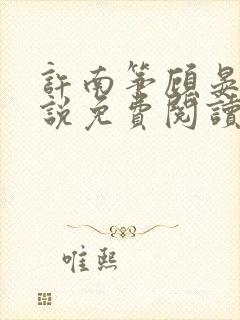 許南笙顧晏
說免費閱讀
唯熙